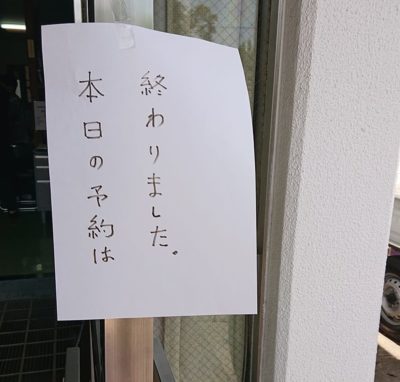 本日の予約は
終わりました。